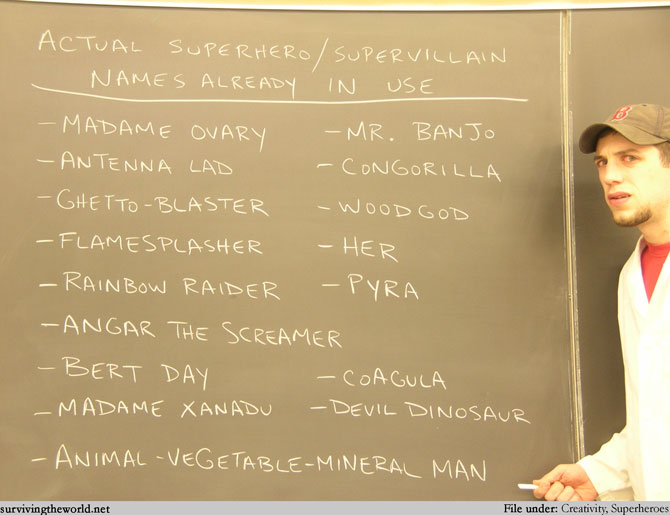 ACTUAL SUPERHERO/SUPERVILLAIN
NAMES ALREADY IN USE
- MADAME OVARY
- MR. BANJO
- ANTENNA LAD
- CONGORILLA
- GHETTO-BLASTER
- WOODGOD
- FLAMESPLASHER
- HER
- RAINBOW RAIDER
- PYRA
- ANGAR THE SCREAMER
- BERT DAY
- COAGULA
- MADAME XANADU
- DEVIL DINOSAUR
- ANIMAL-VEGETABLE-MINERAL MAN
B
survivingtheworld.net
File under: Creativity, Superheroes